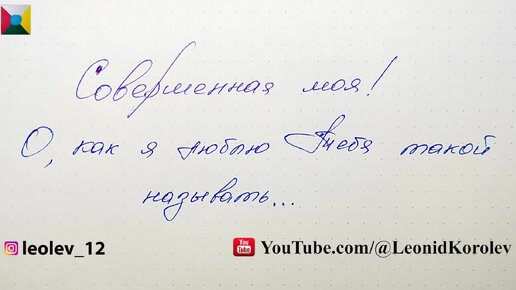 Совершенная моя!
О, как я люблю Тебя такой
называть...
leolev_12
YouTube.com/@LeonidKorolev